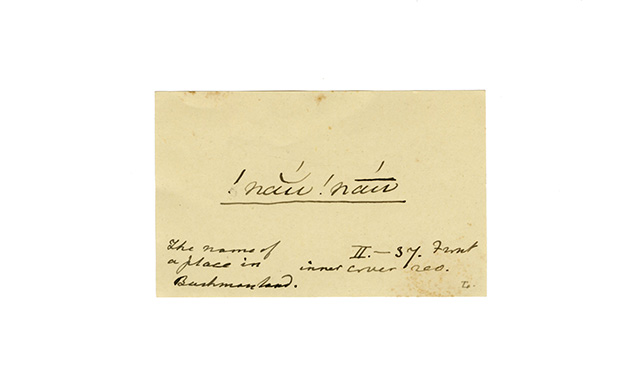 !nău !náu
The name of
a place in
Bushmanland.
II.—37. Front
inner cover rev.